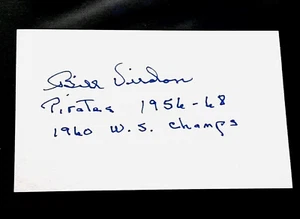 Bill Virdon
Pirates 1956-68
1960 W.S. Champs